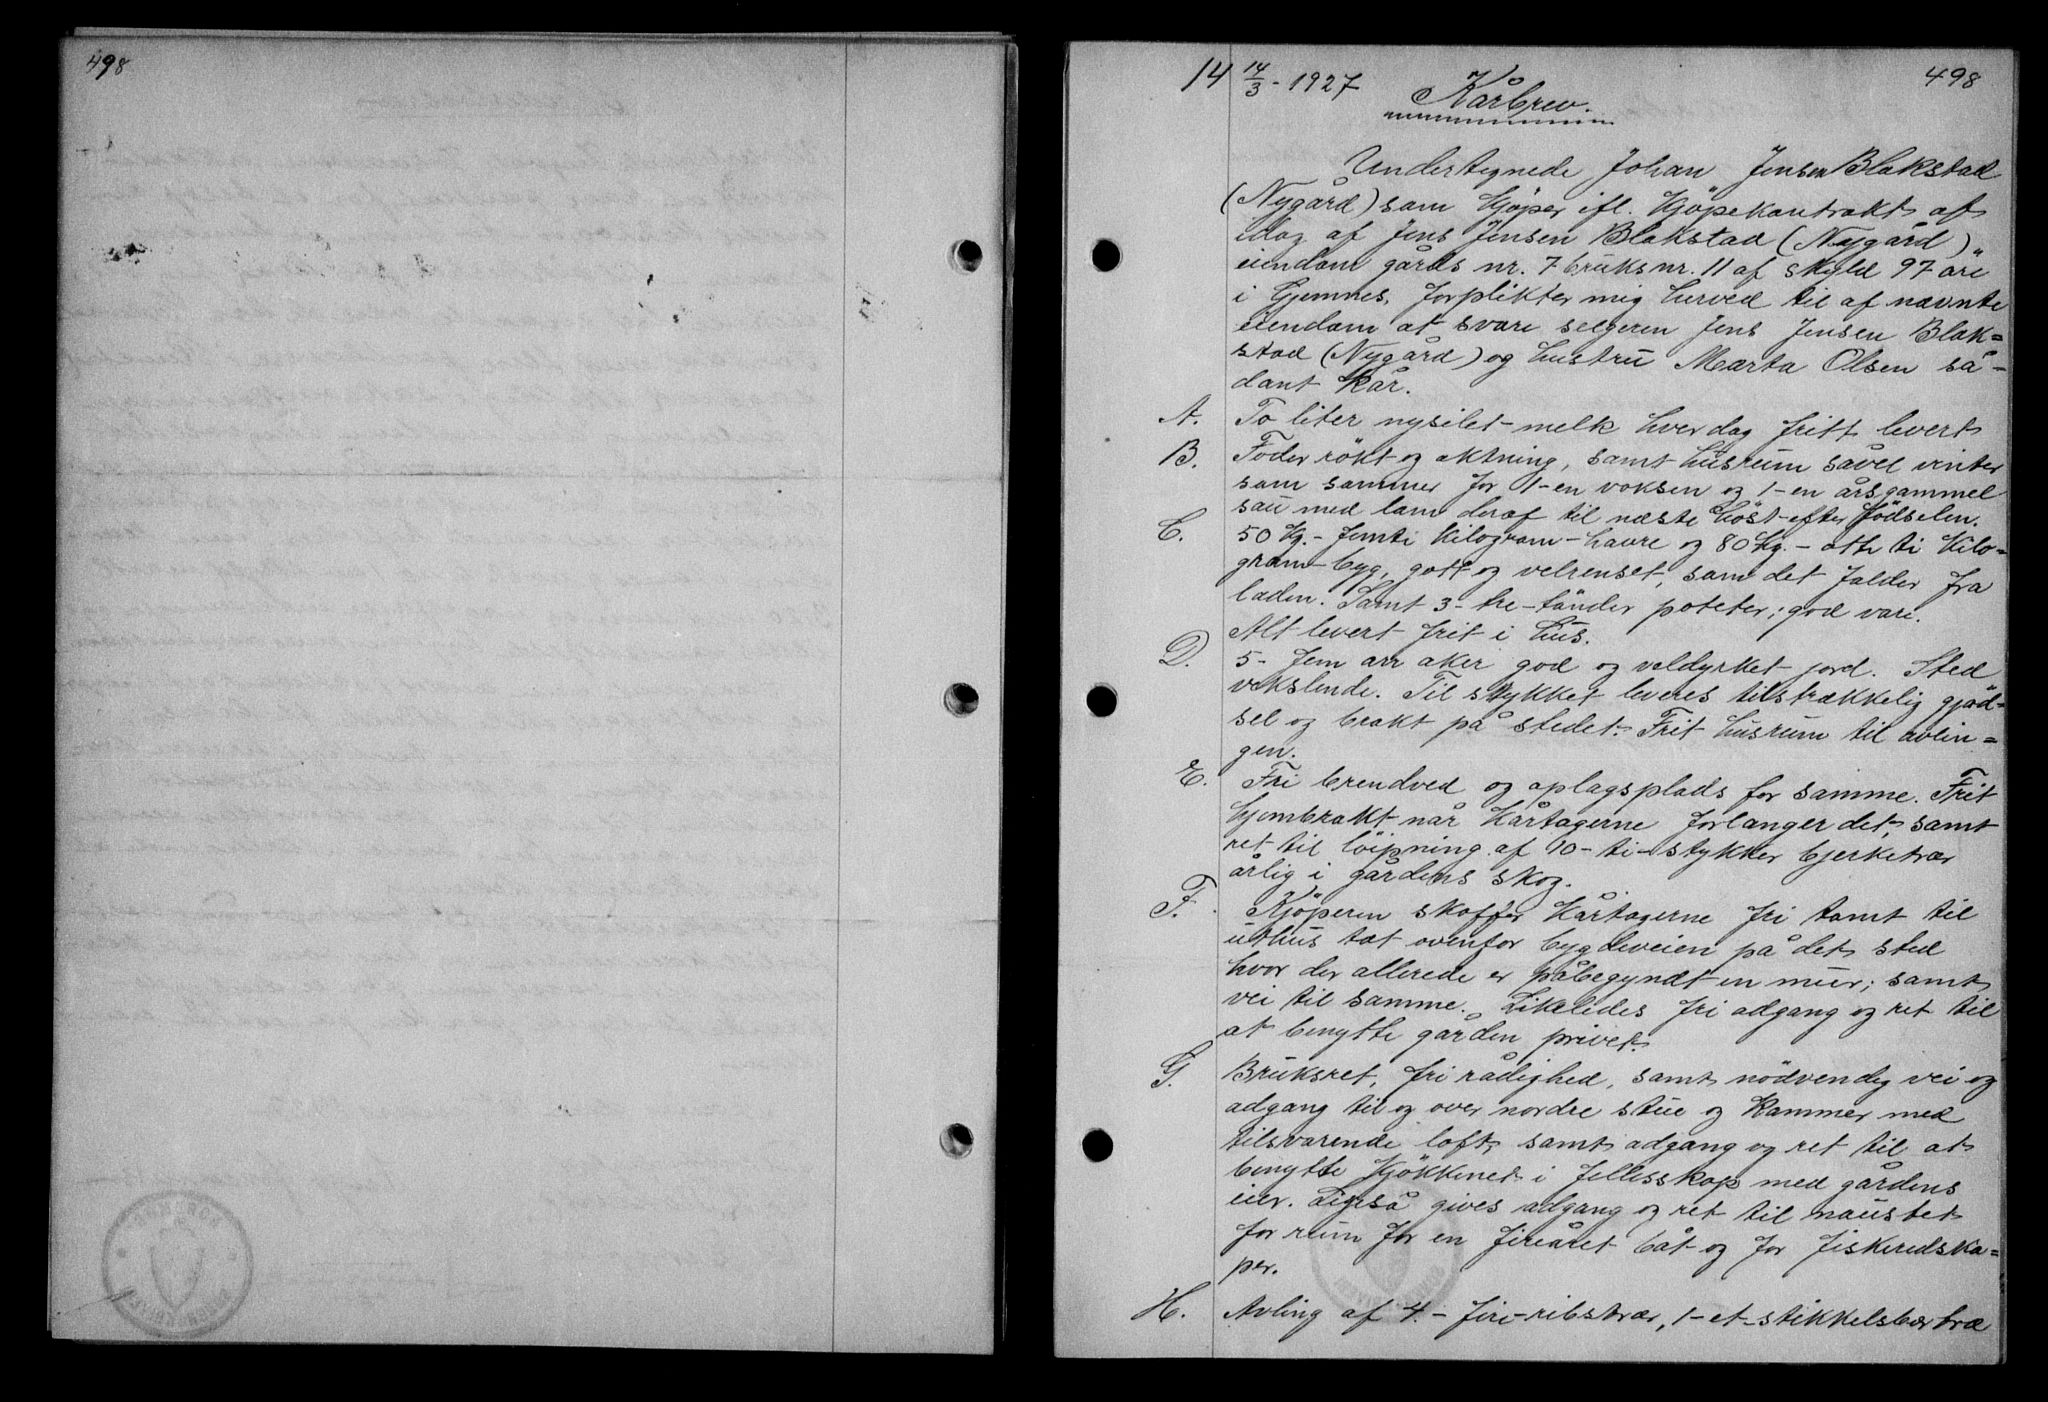 498
14 14/3 - 1927
498
Kårbrev.
Undertegnede Johan Jensen Blakstad
(Nygård) som kjøper ifl. kjöpekontrakt af
idag af Jens Jensen Blakstad (Nygård)
eiendom gårds nr. 7 bruks nr. 11 af skyld 97 öre
i Gjemnes, forplikter mig herved til af nævnte
eiendom at svare selgeren Jens Jensen Blak=
stad (Nygård) og hustru Marta Olsen så-
dant kår.
A. To liter nysilet melk hver dag fritt levert
B. Foder rökt og aktning, samt husrum såvel vinter
som sommer for 1-en voksen og 1-en årsgammel
sau med lam deraf til næste höst efter födselen.
C. 50 kg. - femti kilogram - havre og 80 kg. - otte ti kilo=
gram byg, gott og velrenset, som det falder fra
laden. Samt 3- tre - tönder poteter; god vare.
Alt levert frit i hus.
D. 5- fem arr aker god og veldyrket jord. Sted
vekslende. Til stykket leveres tilstrækkelig gjöd=
sel og brakt på stedet. Frit husrum til avlin=
gen.
E. Fri brendved og oplagsplads for samme. Frit
hjembrakt når kårtagerne forlanger det, samt
ret til löipning af 10- ti - stykker bjerketrær
årlig i gårdens skog.
F. Kjöperen skaffer kårtagerne fri tomt til
uthus tæt ovenfor bygdeveien på det sted
hvor der allerede er påbegyndt en mur; samt
vei til samme. Likeledes fri adgang og ret til
at benytte gården privet.
G. Bruksret, fri rådighed, samt nödvendig vei og
adgang til og over nordre stue og kammer med
tilsvarende loft, samt adgang og ret til at
benytte kjökkenet i fellesskap med gårdens
eier. Ligeså gives adgang og ret til naustet
for rum for en fireåret båt og for fiskeredska=
per.
H. Avling af 4. - fire - ribstrær, 1- et - stikkelsbærtræ